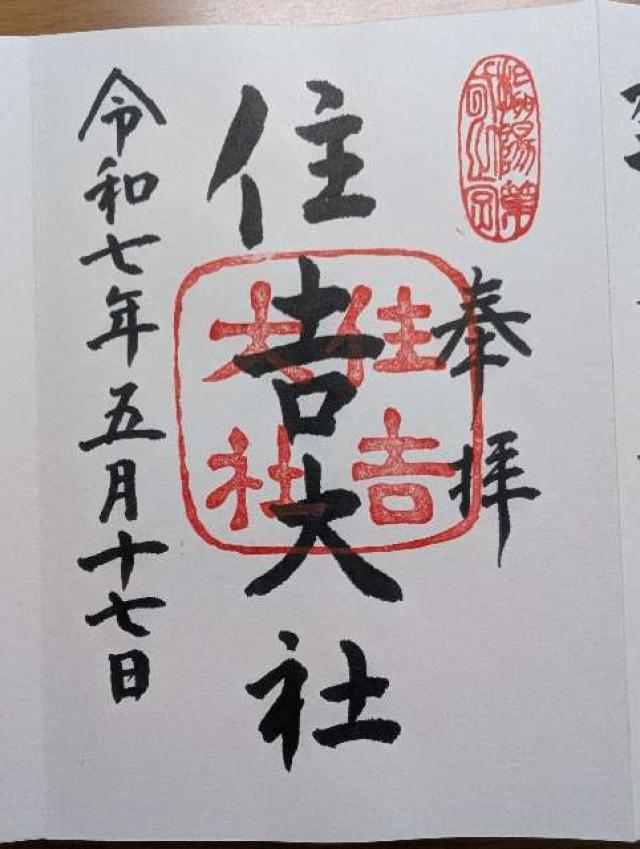 奉拝
住吉大社
住吉
大社
令和七年五月十七日